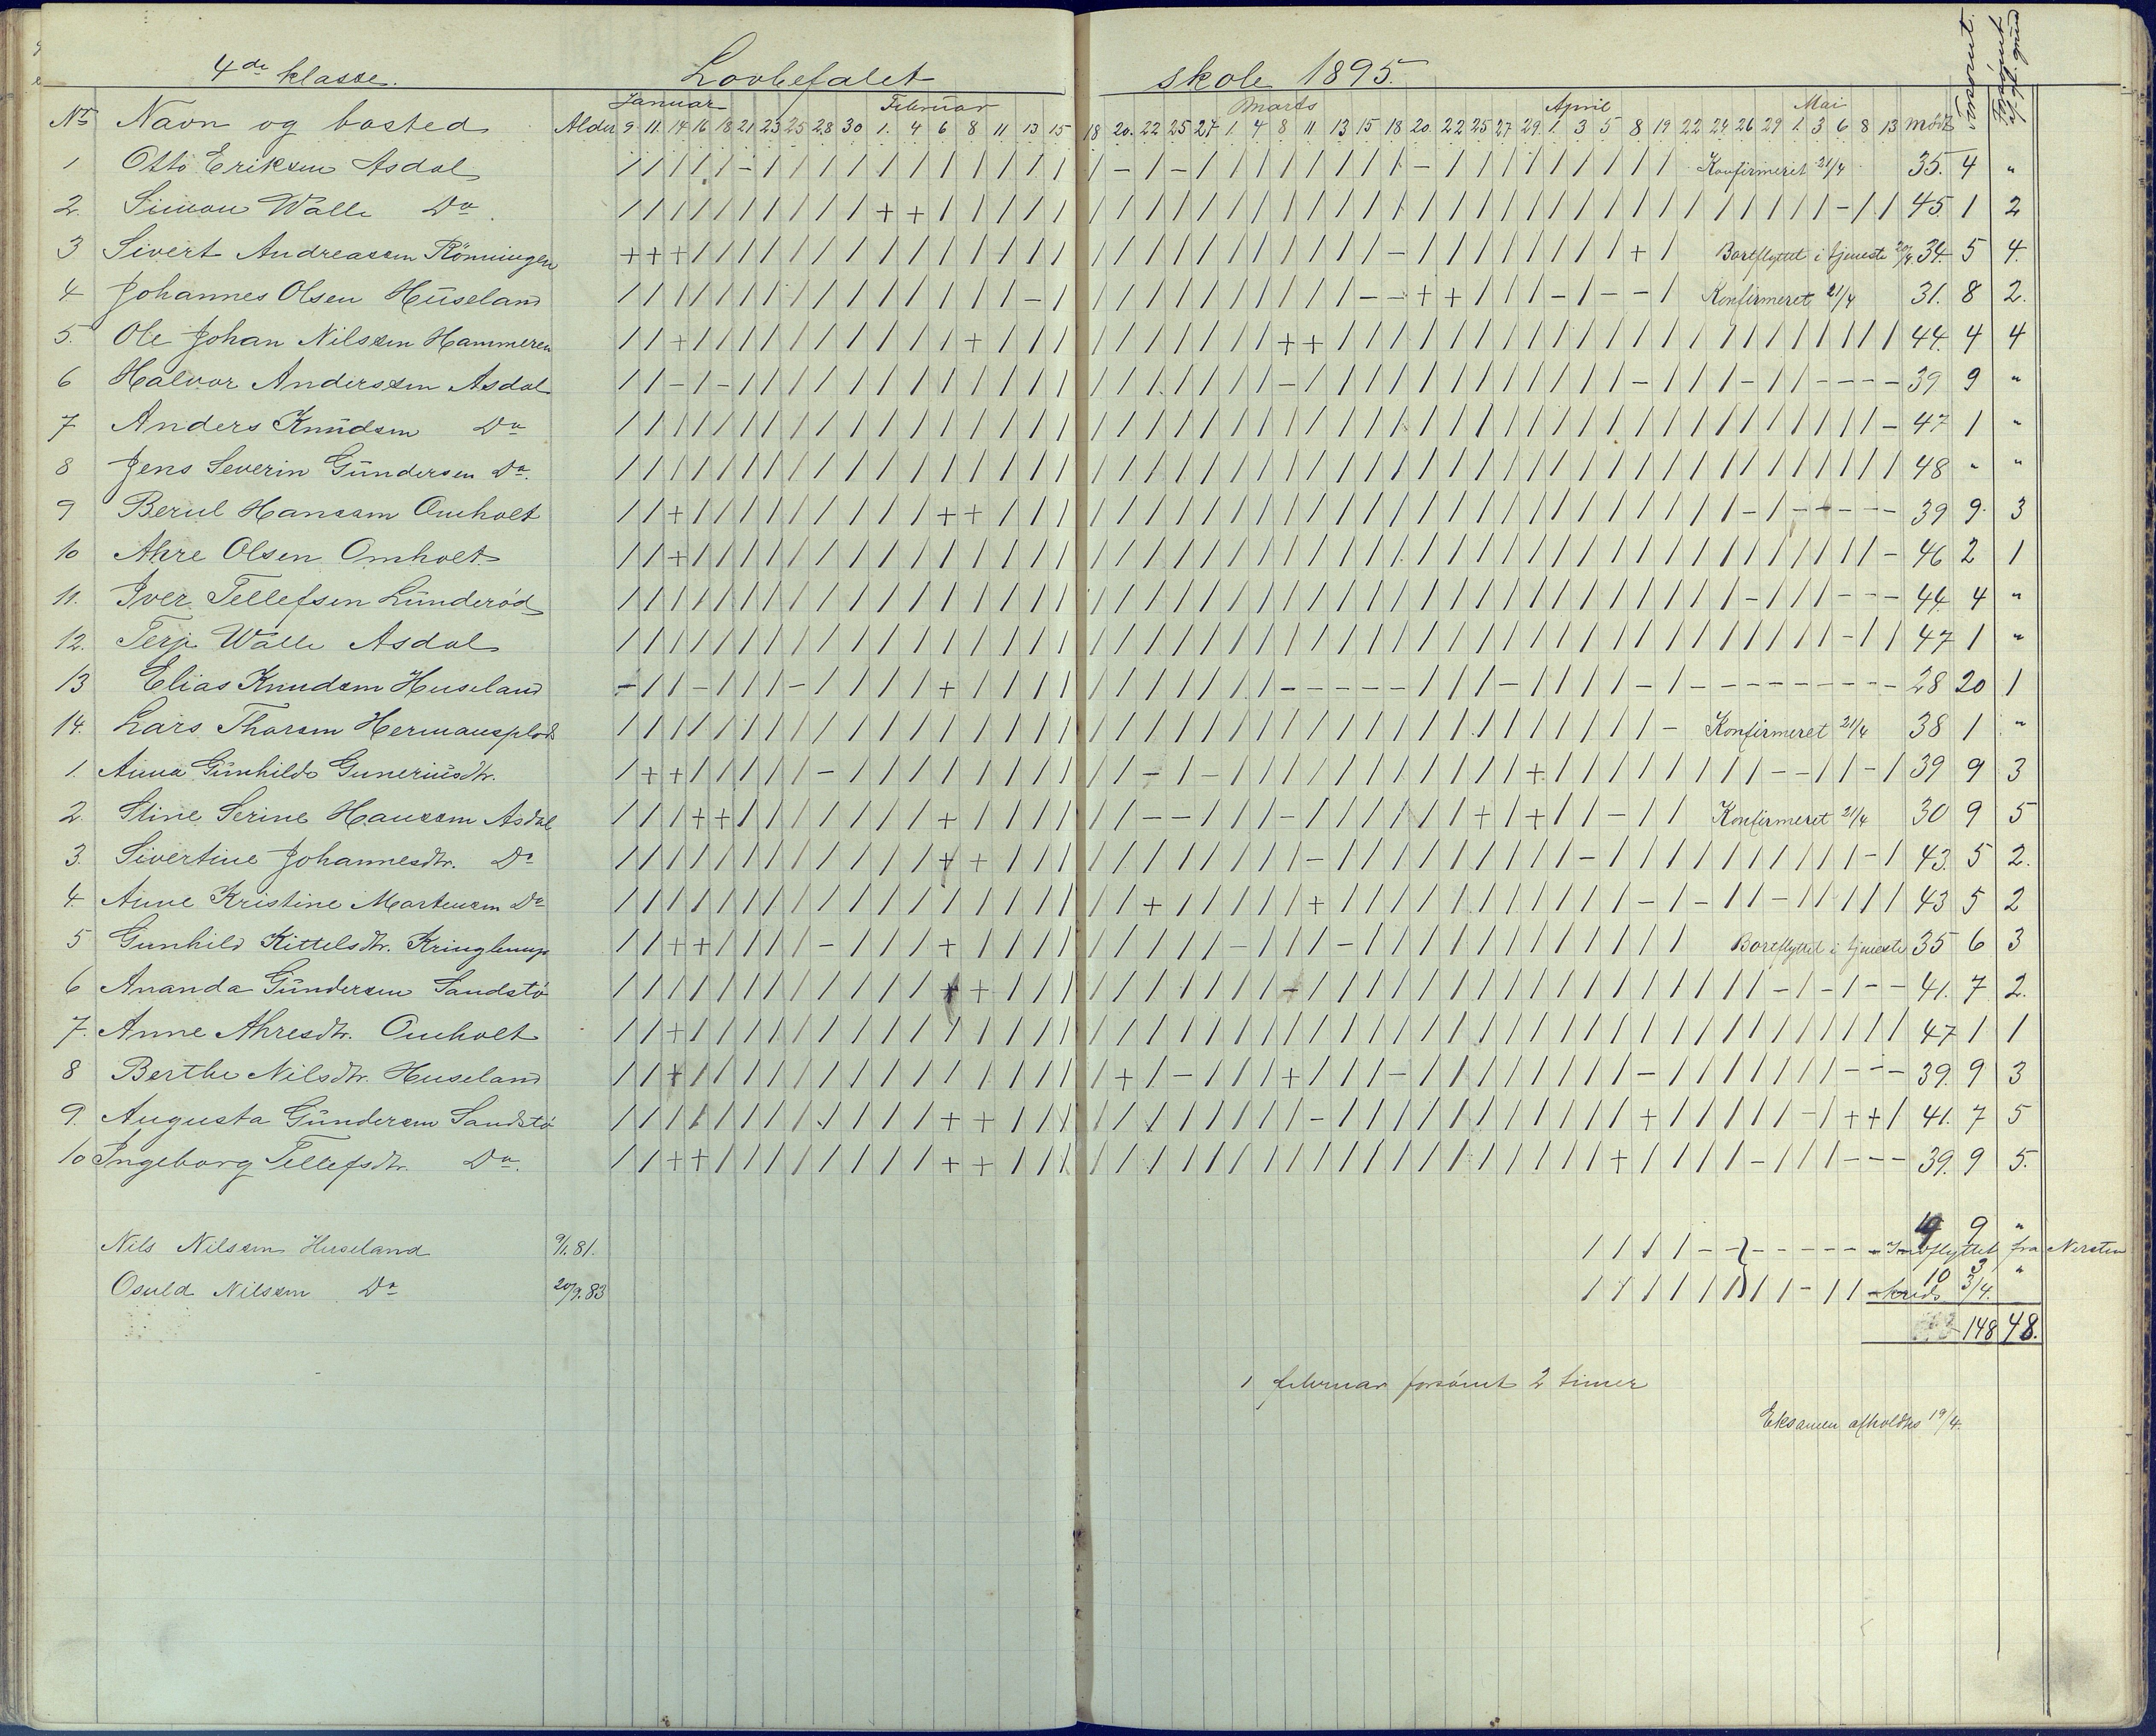 4de klasse. Lovbefalet skole 1895.
Januar Februar Marts April Mai
No Navn og bosted Alder 9 11 14 16 18 21 23 25 28 30 1. 4 6 8 11 13 15 18 20. 22 25 27 1. 4 8 11 13 15 18 20. 22 25 27 29. 1. 3 5 8 19 22 24 26 29 1. 3 6 8 13 Mødt Forsømt. Forsømt af gl. grund
1 Otto Eriksen Asdal / / / / / - / / / / / / / / / / / / - / - / / / / / / / / - / / / / / / / / / Konfirmeret 21/4 35. 4 "
2. Simon Walle Do. / / / / / / / / / / + + / / / / / / / / / / / / / / / / / / / / / / / / / / / / / / / / / - / / 45 1 2
3 Sivert Andreassen Rönningen + + + / / / / / / / / / / / / / / / / / / / / / / / / / - / / / / / / / / + / Bortflyttet i tjeneste 20/4. 34. 5 4.
4 Johannes Olsen Huseland / / / / / / / / / / / / / / / - / / / / / / / / / / / - - + + / / / - / - - / Konfirmeret 21/4 31. 8 2.
5. Ole Johan Nilssen Hammeren / / + / / / / / / / / / / + / / / / / / / / / / + + / / / / / / / / / / / / / / / / / / / / / / 44. 4 4
6 Halvor Anderssen Asdal / / - / - / / / / / / / / / / / / / / / / / / / - / / / / / / / / / / / / - / / / - / / - - - - 39 9 "
7 Anders Knudsen Do / / / / / / / / / / / / / / / / / / / / / / / / / / / / / / / / / / / / / / / / / / / / / / / - 47 1 "
8 Jens Severin Gundersen Do. / / / / / / / / / / / / / / / / / / / / / / / / / / / / / / / / / / / / / / / / / / / / / / / / 48 " "
9 Berul Hanssen Omholt / / + / / / / / / / / / + + / / / / / / / / / / / / / / / / / / / / / / / / / / / - / - - - - - 39 9. 3
10 Ahre Olsen Omholt / / + / / / / / / / / / / / / / / / / / / / / / / / / / / / / / / / / / / / / / / / / / / / / - 46 2 1
11. Iver Tellefsen Lunderød / / / / / / / / / / / / / / / / / / / / / / / / / / / / / / / / / / / / / / / / / - / / / - - - 44. 4 "
12. Terje Walle Asdal / / / / / / / / / / / / / / / / / / / / / / / / / / / / / / / / / / / / / / / / / / / / / - / / 47 1 "
13 Elias Knudsen Huseland - / / - / / / - / / / / + / / / / / / / / / / / - - - - - / / / - / / / / - / - - - - - - - - - 28 20 1
14. Lars Thorsen Hermansplads / / / / / / / / / / / / / / / / / / / / / / / / / / / / / / / / / / / / / / - Konfirmeret 21/4 38 1 "
1. Anna Gunhilds Guneriusdtr. / + + / / / / / - / / / / / / / / / / - / - / / / / / / / / / / / + / / / / / / / / - - / / - / 39 9 3
2. Stine Serine Hanssen Asdal / / / + + / / / / / / / + / / / / / / - - / / / - / / / / / / + / + / / - / / Konfirmeret 21/4 30 9 5
3. Sivertine Johannesdtr. Do / / / / / / / / / / / / + + / / / / / / / / / / / - / / / / / / / / / - / / / / / / / / / / - / 43. 5 2.
4. Anne Kristine Martensen Do / / / / / / / / / / / / / / / / / / / + / / / / / + / / / / / / / / / / / - / - / / - / / / / / 43 5 2
5 Gunhild Kittelsdtr. / / + + / / / / - / / / + / / / / / / / / / - / / / - / / / / / / / / / / / / Bortflyttet i tjeneste 35 6 3
6 Ananda Gundersen Sandstø / / / / / / / / / / / / + + / / / / / / / / / / - / / / / / / / / / / / / / / / / / - / - / - - 41. 7 2.
7. Anne Ahresdtr. Omholt / / + / / / / / / / / / / / / / / / / / / / / / / / / / / / / / / / / / / / / / / / / / / / / / 47 1 1
8 Berthe Nilsdtr. Huseland / / + / / / / / / / / / / / / / / / + / - / / / + / / / - / / / / / / / / - / / / / / / / - - - 39. 9 3
9. Augusta Gundersen Sandstø / / / / / / / / / / / / + + / / / / / / / / / / / - / / / / / / / / / / / + / / / / / - / + + / 41. 7 5
10 Ingeborg Tellefsdtr. Do. / / + + / / / / / / / / + + / / / / / / / / / / / / / / / / / / / / / / + / / / / - / / / - - - 39. 9 5.
Nils Nilssen Huseland 9/1. 81. / / / / - - - - - - - - 4 9 " Indflyttet fra Nersten
Osuld Nilssen Do 20/9. 83 / / / / / / / / - / / - 10 3 " kreds 3/4.
148 48.
1 februar forsømt 2 timer
Eksamen afholdtes 19/4.